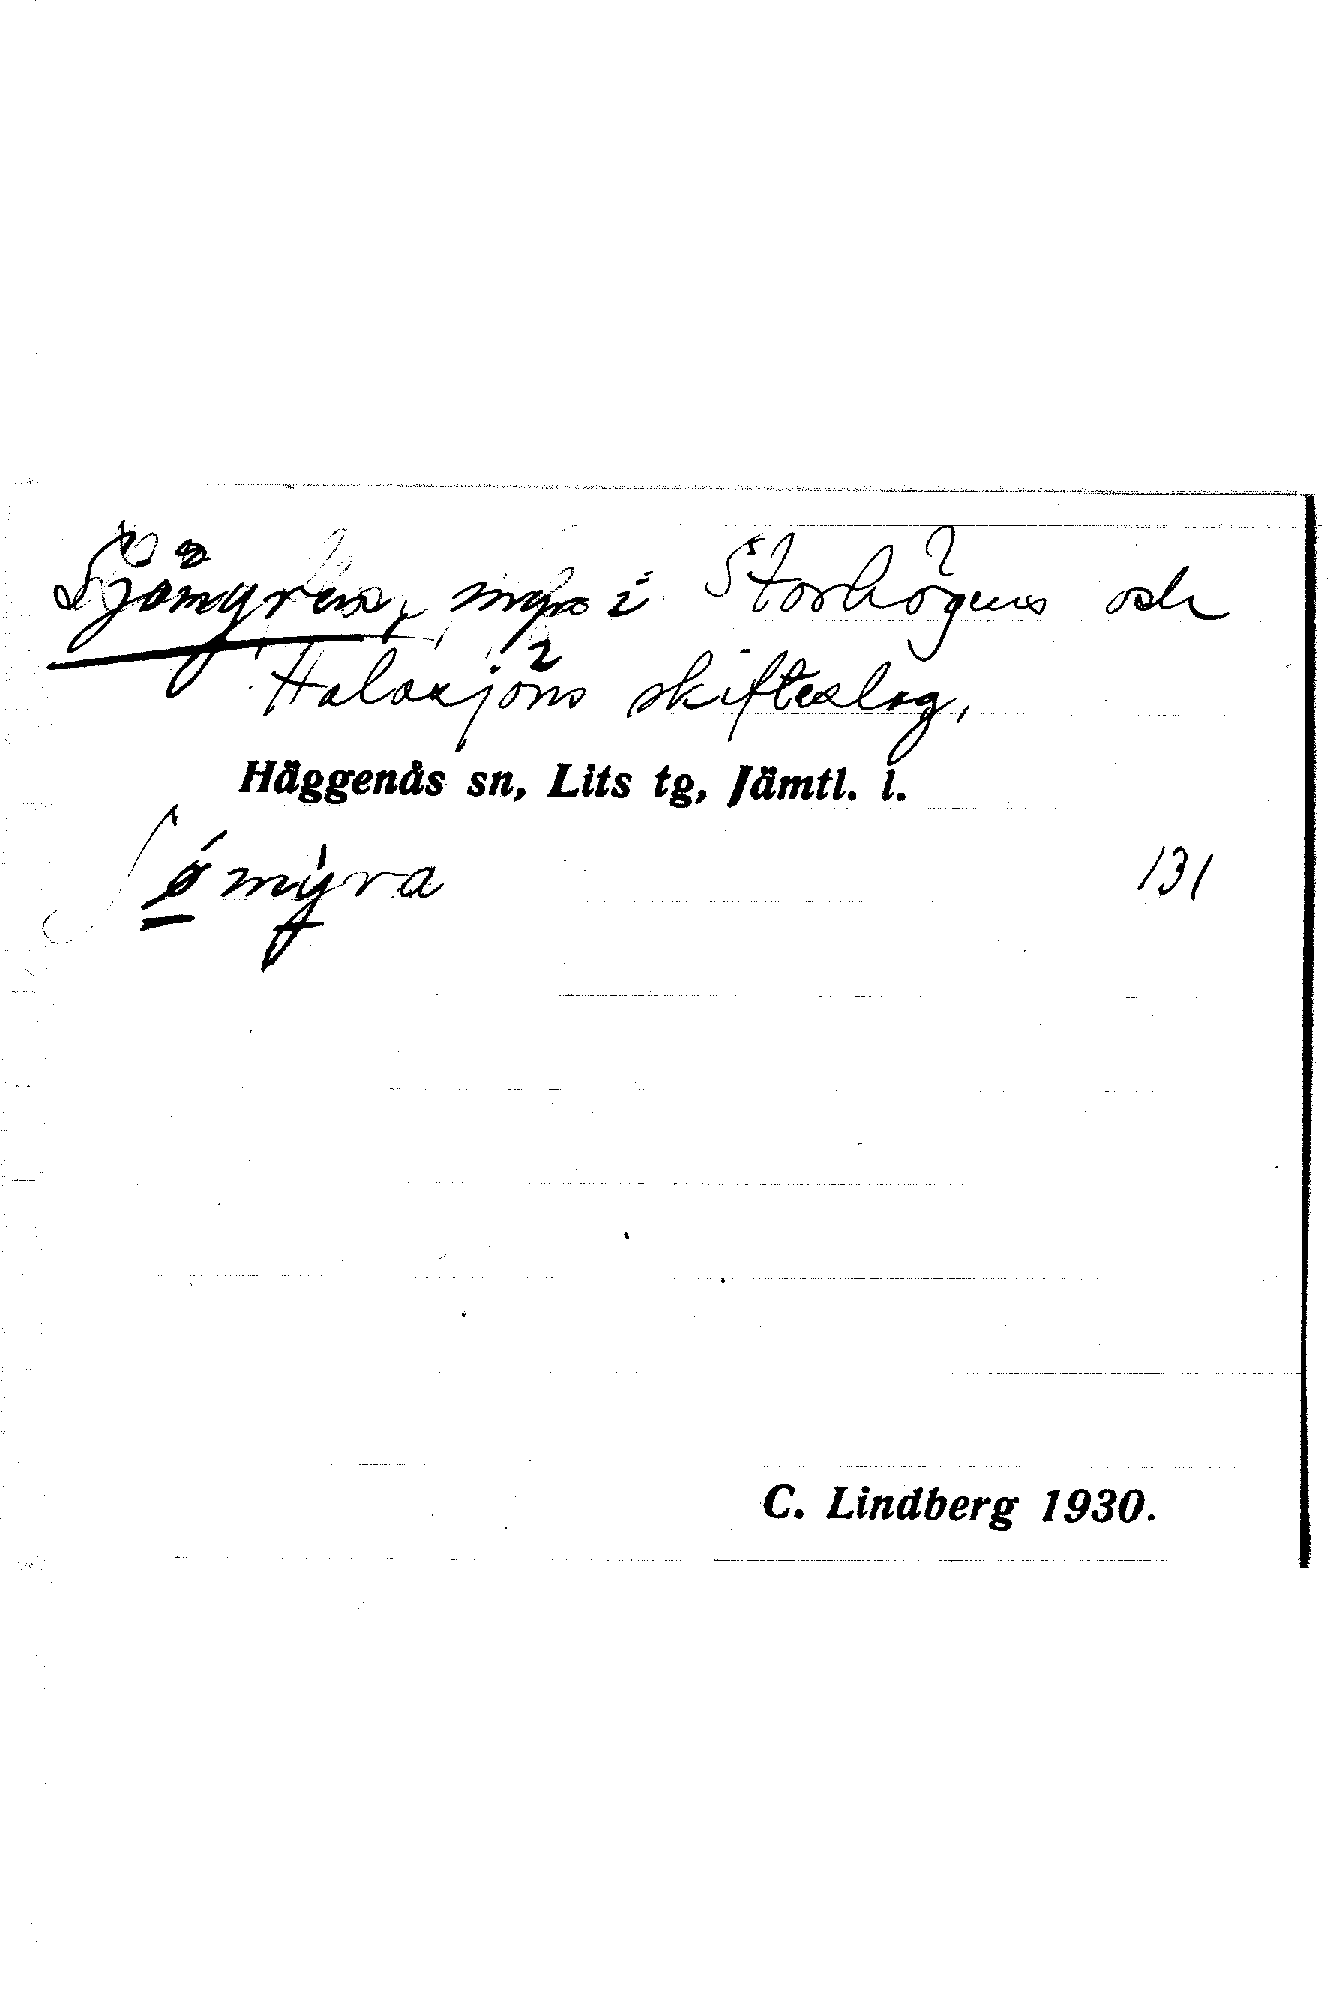 Sjömyren, myr i Storhögens och
Halasjöns skifteslag,
Häggenås sn, Lits tg, Jämtl. l.
ʃømýra 131
C. Lindberg 1930.